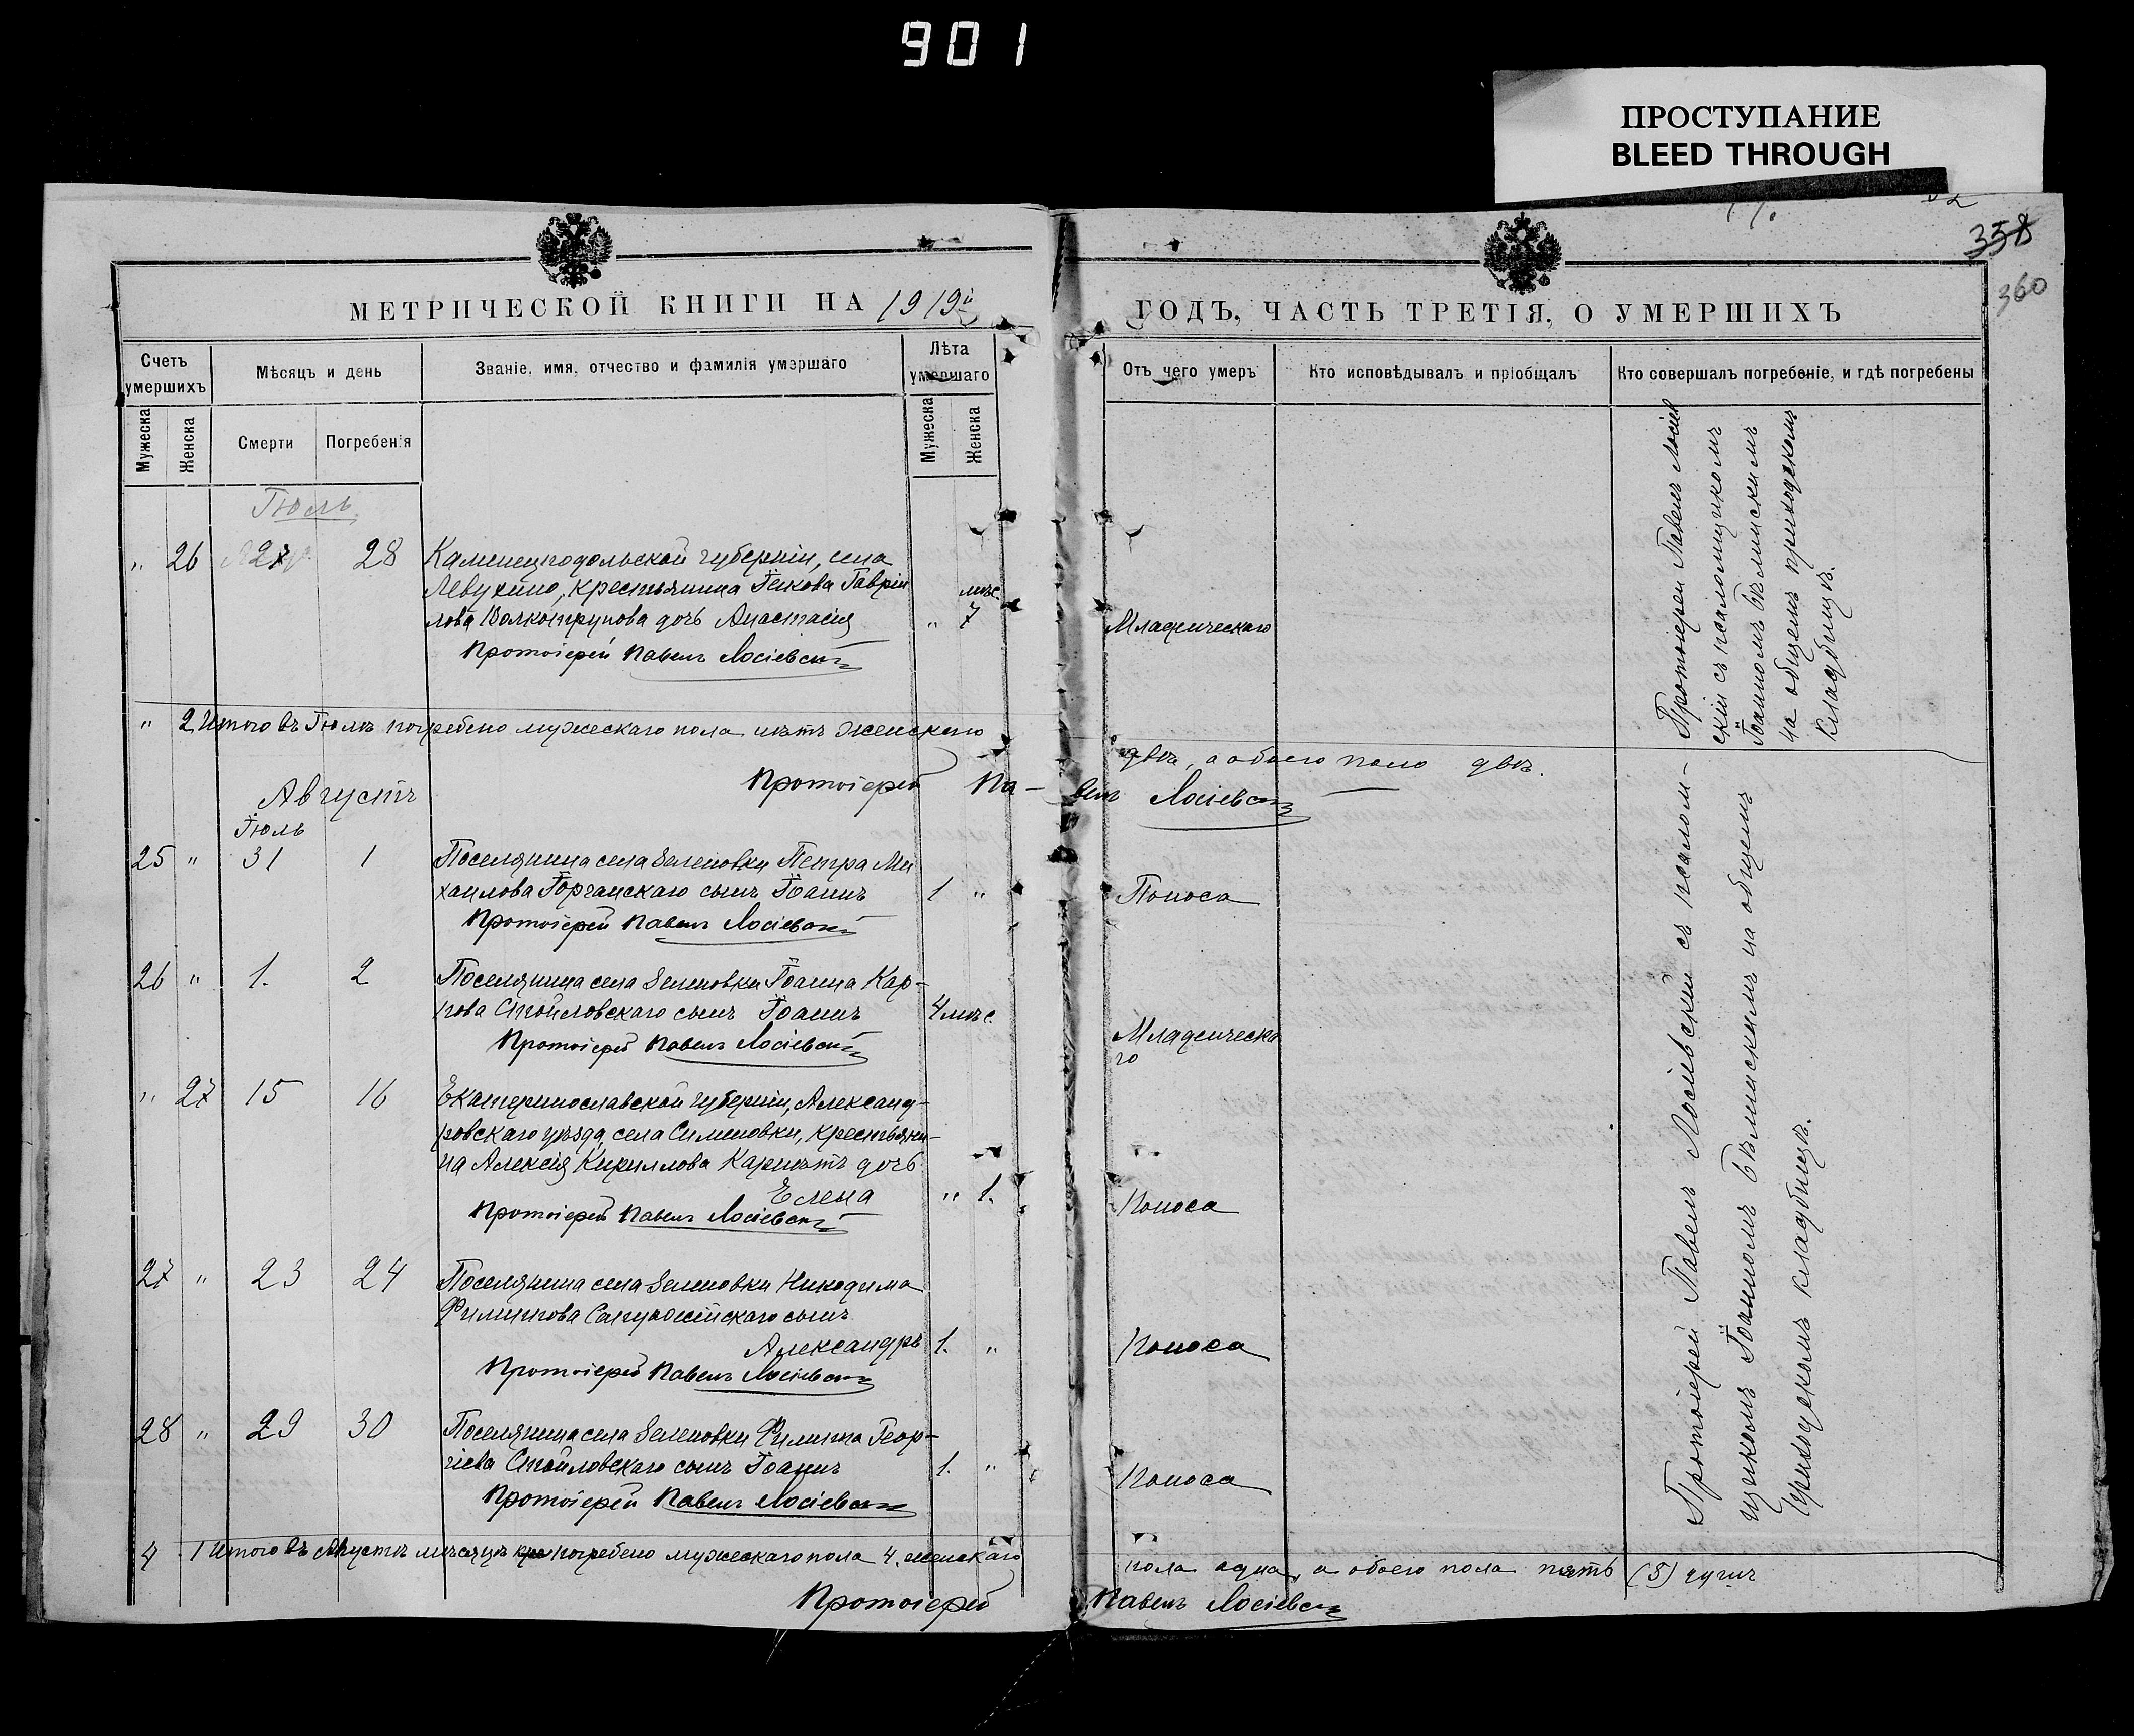 901
ПРОСТУПАНИЕ
BLEED THROUGH
358
360
МЕТРИЧЕСКОЙ КНИГИ НА 1919й
ГОДЪ, ЧАСТЬ ТРЕТІЯ, О УМЕРШИХЪ
Счетъ умершихъ
Мѣсяцъ и день
Званіе, имя, отчество и фамилія умершаго
Лѣта умершаго
Отъ чего умеръ
Кто исповѣдывалъ и пріобщалъ
Кто совершалъ погребеніе, и гдѣ погребены
Мужеска
Женска
Смерти
Погребенія
Мужеска
Женска
Іюль.
" 26 27 28 Каменецподольской губерніи, села
крестьянина Іакова Гаврії
лова дочь Анастасія
мѣс.
" 7
Младенческаго
Протоіерей Павелъ Лосіевскій
Протоіерей Павелъ Лосіев
скій съ псаломщикомъ
Іоанномъ Бѣлинскимъ
на общемъ приходскомъ
кладбищѣ.
" 2 Итого въ Іюлѣ погребено мужескаго пола нѣтъ женскаго
двѣ, а обоего пола двѣ.
Протоіерей Па-
велъ Лосіевскій
Августъ
Іюль
25 " 31 1 Поселянина села Зеленовки Петра Ми
хаилова сынъ Іоаннъ 1 "
Поноса
Протоіерей Павелъ Лосіевскій
26 " 1. 2 Поселянина села Зеленовки Іоанна Кар-
пова сынъ Іоаннъ 4 мѣс.
Младенческа
го
Протоіерей Павелъ Лосіевскій
" 27 15 16 Екатеринославской губерніи, Александ-
ровскаго уѣзда, села Сименовки, крестьяни-
на Алексія Кириллова дочь
Елена " 1.
Поноса
Протоіерей Павелъ Лосіевскій
27 " 23 24 Поселянина села Зеленовки Никодима
Филиппова сынъ
Александръ 1. "
Поноса
Протоіерей Павелъ Лосіевскій
28 " 29 30 Поселянина села Зеленовки Филиппа Геор-
гіева сынъ Іоаннъ 1. "
Поноса
Протоіерей Павелъ Лосіевскій
Протоіерей Павелъ Лосіевскій съ псалом-
щикомъ Іоанномъ Бѣлинскимъ на общемъ
приходскомъ кладбищѣ.
4 1 Итого въ Августѣ мѣсяцѣ погребено мужескаго пола 4. женскаго
пола одна, а обоего пола пять (5) душъ
Протоіерей
Павелъ Лосіевскій